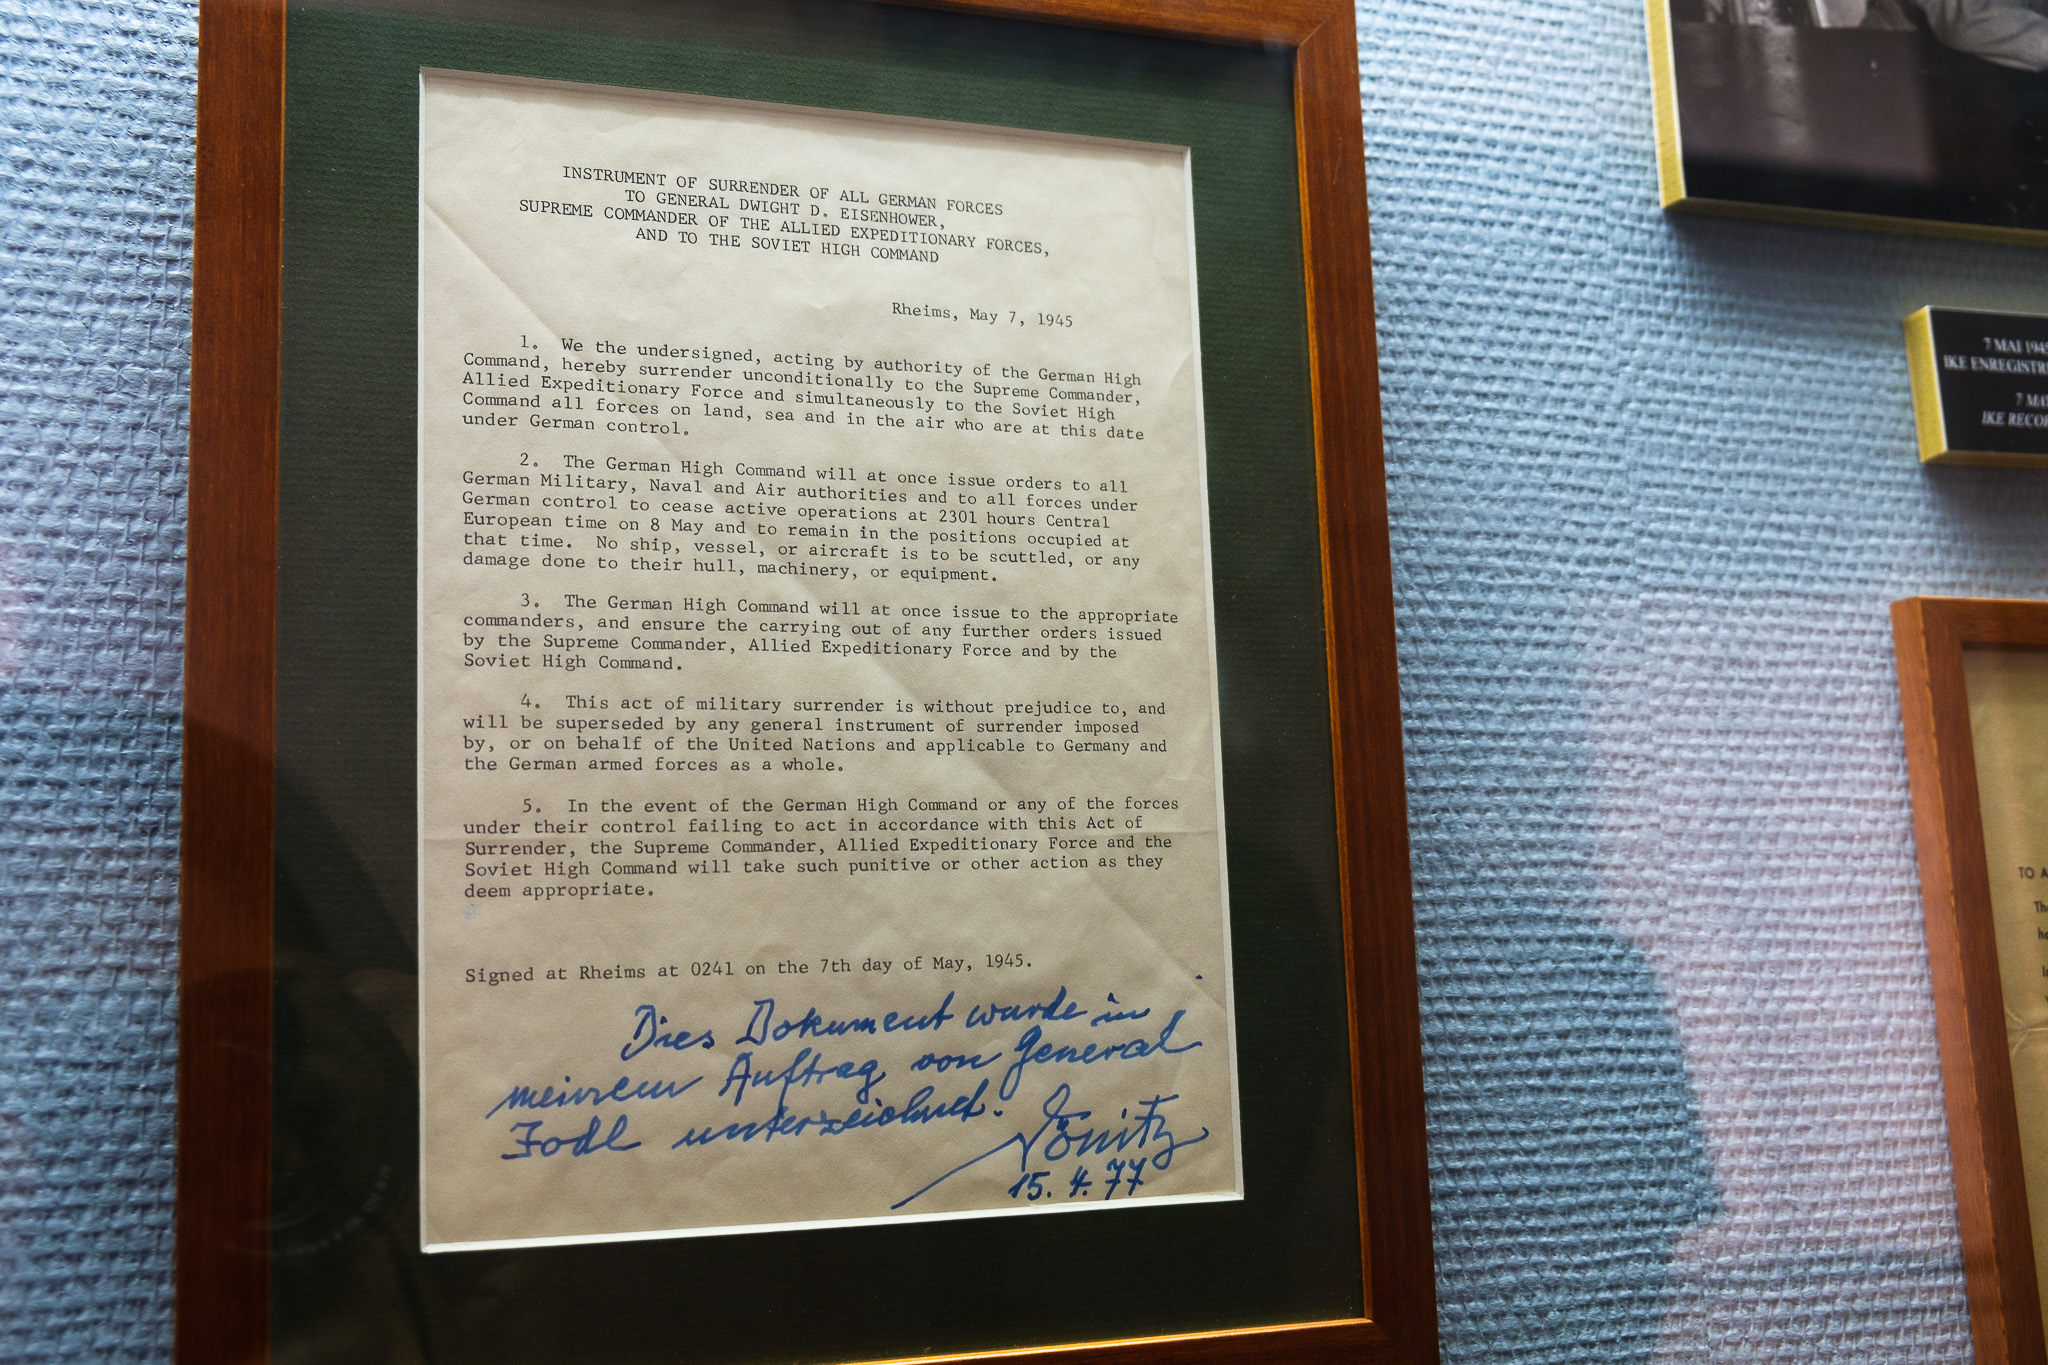 INSTRUMENT OF SURRENDER OF ALL GERMAN FORCES
TO GENERAL DWIGHT D. EISENHOWER,
SUPREME COMMANDER OF THE ALLIED EXPEDITIONARY FORCES,
AND TO THE SOVIET HIGH COMMAND
Rheims, May 7, 1945
1. We the undersigned, acting by authority of the German High
Command, hereby surrender unconditionally to the Supreme Commander,
Allied Expeditionary Force and simultaneously to the Soviet High
Command all forces on land, sea and in the air who are at this date
under German control.
2. The German High Command will at once issue orders to all
German Military, Naval and Air authorities and to all forces under
German control to cease active operations at 2301 hours Central
European time on 8 May and to remain in the positions occupied at
that time. No ship, vessel, or aircraft is to be scuttled, or any
damage done to their hull, machinery, or equipment.
3. The German High Command will at once issue to the appropriate
commanders, and ensure the carrying out of any further orders issued
by the Supreme Commander, Allied Expeditionary Force and by the
Soviet High Command.
4. This act of military surrender is without prejudice to, and
will be superseded by any general instrument of surrender imposed
by, or on behalf of the United Nations and applicable to Germany and
the German armed forces as a whole.
5. In the event of the German High Command or any of the forces
under their control failing to act in accordance with this Act of
Surrender, the Supreme Commander, Allied Expeditionary Force and the
Soviet High Command will take such punitive or other action as they
deem appropriate.
Signed at Rheims at 0241 on the 7th day of May, 1945.
Dies Dokument wurde in
meinem Auftrag von General
Jodl unterzeichnet.
Dönitz
15.4.77
7 MAI 1945
IKE
7 MAY
IKE
TO